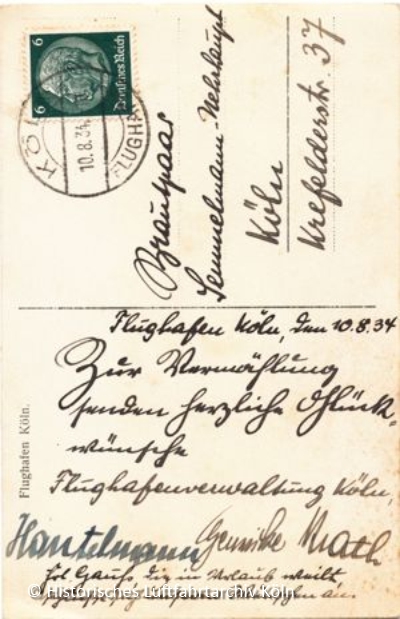 6 6
Deutsches Reich
KÖ
10.8.34
FLUGHA
Brautpaar
Semmelmann-Nehrhaupt
Köln
Krefelderstr. 37
Flughafen Köln, den 10.8.34
Zur Vermählung
senden herzliche Glück-
wünsche
Flughafenverwaltung Köln,
Hantelmann
Frl. Gauß, die in Urlaub weilt
Flughafen Köln.
© Historisches Luftfahrtarchiv Köln